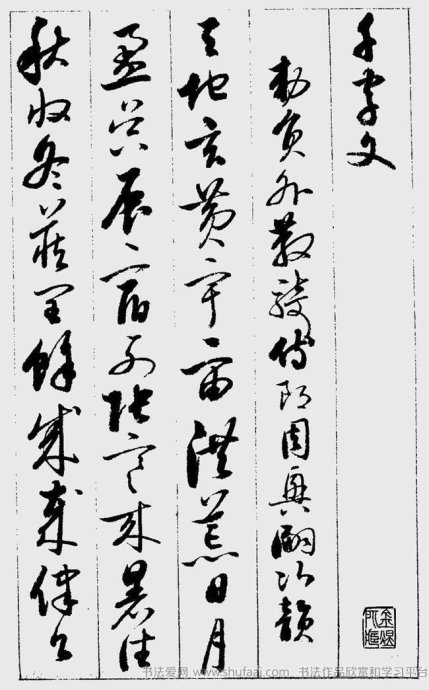 千字文
勑員外散騎侍郎周興嗣次韻
天地玄黃宇宙洪荒日月
盈昃辰宿列張寒來暑往
秋收冬藏閏餘成歲律呂
书法爱网 www.shufaai.com 书法作品欣赏和学习平台